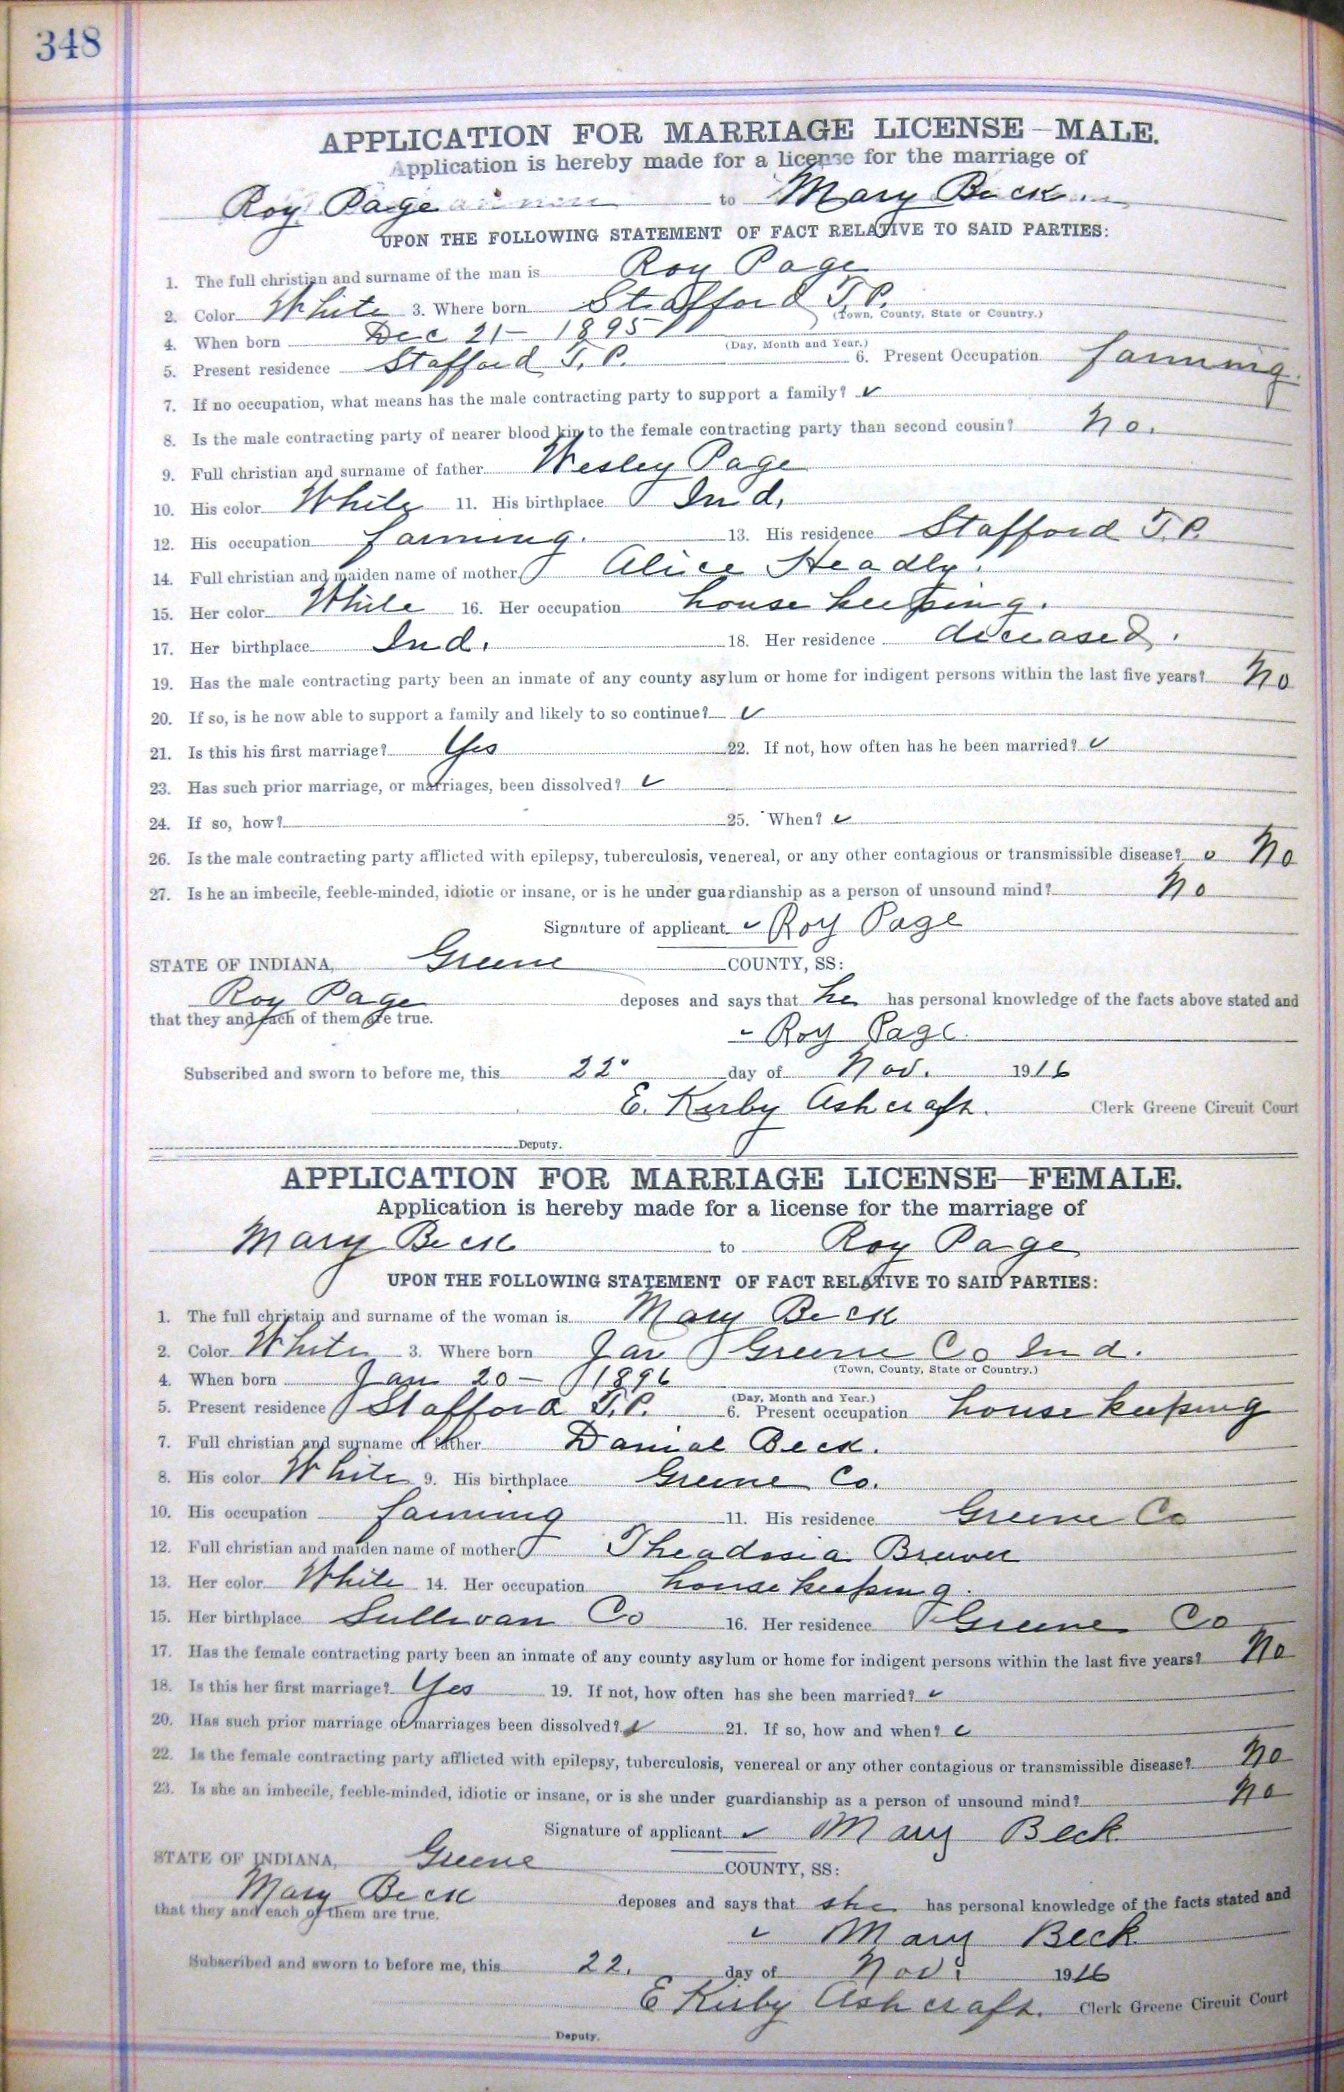 348
APPLICATION FOR MARRIAGE LICENSE—MALE.
Application is hereby made for a license for the marriage of
Roy Page to Mary Beck
UPON THE FOLLOWING STATEMENT OF FACT RELATIVE TO SAID PARTIES:
1. The full christian and surname of the man is Roy Page
2. Color White 3. Where born Stafford T.P.
(Town, County, State or Country.)
4. When born Dec 21 - 1895
(Day, Month and Year.)
5. Present residence Stafford T.P. 6. Present Occupation farming
7. If no occupation, what means has the male contracting party to support a family? ✓
8. Is the male contracting party of nearer blood kin to the female contracting party than second cousin? No.
9. Full christian and surname of father Wesley Page
10. His color White 11. His birthplace Ind.
12. His occupation farming. 13. His residence Stafford T.P.
14. Full christian and maiden name of mother Alice Headly.
15. Her color White 16. Her occupation house keeping.
17. Her birthplace Ind. 18. Her residence deceased.
19. Has the male contracting party been an inmate of any county asylum or home for indigent persons within the last five years? No
20. If so, is he now able to support a family and likely to so continue? ✓
21. Is this his first marriage? Yes 22. If not, how often has he been married? ✓
23. Has such prior marriage, or marriages, been dissolved? ✓
24. If so, how? 25. When? ✓
26. Is the male contracting party afflicted with epilepsy, tuberculosis, venereal, or any other contagious or transmissible disease? No
27. Is he an imbecile, feeble-minded, idiotic or insane, or is he under guardianship as a person of unsound mind? No
Signature of applicant ✓ Roy Page
STATE OF INDIANA, Greene COUNTY, SS:
Roy Page deposes and says that he has personal knowledge of the facts above stated and
that they and each of them are true.
Roy Page
Subscribed and sworn to before me, this 22" day of Nov. 1916
E. Kirby Ashcraft. Clerk Greene Circuit Court
Deputy.
APPLICATION FOR MARRIAGE LICENSE—FEMALE.
Application is hereby made for a license for the marriage of
Mary Beck to Roy Page
UPON THE FOLLOWING STATEMENT OF FACT RELATIVE TO SAID PARTIES:
1. The full christain and surname of the woman is Mary Beck
2. Color White 3. Where born Greene Co Ind.
(Town, County, State or Country.)
4. When born Jan 20 - 1896
(Day, Month and Year.)
5. Present residence Stafford T.P. 6. Present occupation house keeping
7. Full christian and surname of father Danial Beck.
8. His color White 9. His birthplace Greene Co.
10. His occupation farming 11. His residence Greene Co
12. Full christian and maiden name of mother Theadosia Brewer
13. Her color White 14. Her occupation house keeping.
15. Her birthplace Sullivan Co 16. Her residence Greene Co
17. Has the female contracting party been an inmate of any county asylum or home for indigent persons within the last five years? No
18. Is this her first marriage? Yes 19. If not, how often has she been married? ✓
20. Has such prior marriage or marriages been dissolved? ✓ 21. If so, how and when? ✓
22. Is the female contracting party afflicted with epilepsy, tuberculosis, venereal or any other contagious or transmissible disease? No
23. Is she an imbecile, feeble-minded, idiotic or insane, or is she under guardianship as a person of unsound mind? No
Signature of applicant ✓ Mary Beck
STATE OF INDIANA, Greene COUNTY, SS:
Mary Beck deposes and says that she has personal knowledge of the facts stated and
that they and each of them are true.
✓ Mary Beck
Subscribed and sworn to before me, this 22. day of Nov. 1916
E Kirby Ashcraft. Clerk Greene Circuit Court
Deputy.